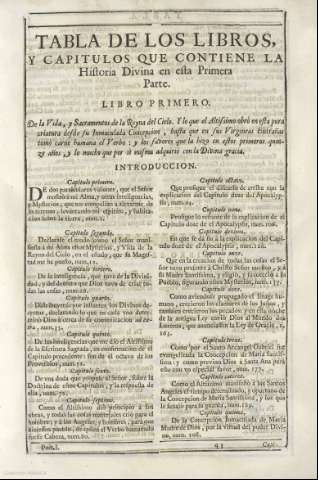 TABLA DE LOS LIBROS,
Y CAPITULOS QUE CONTIENE LA
Historia Divina en esta Primera
Parte.
LIBRO PRIMERO.
De la Vida, y Sacramentos de la Reyna del Cielo. Y lo que el Altissimo obrò en esta pura
criatura desde su Inmaculada Concepcion, hasta que en sus Virgineas Entrañas
tomò carne humana el Verbo: y los favores que la hizo en estos primeros quin-
ze años, y lo mucho que por sì misma adquiriò con la Divina gracia.
INTRODUCCION.
Capitulo primero.
DE dos particulares visiones, que el Señor
mostrò à mi Alma, y otras inteligencias,
y Mysterios, que me compelian à alexarme de
lo terreno, levantando mi espiritu, y habita-
cion sobre la tierra, num. 1.
Capitulo segundo.
Declarase el modo como el Señor mani-
fiesta à mi Alma estos Mysterios, y Vida de la
Reyna del Cielo, en el estado, que su Magestad
me ha puesto, num.
Capitulo tercero.
De la inteligencia, que tuve de la Divini-
dad, y del decreto que Dios tuvo de criar to-
das las cosas, num.
Capitulo quarto.
Distribuyense por instantes los Divinos de-
cretos, declarando lo que en cada uno deter-
minò Dios à cerca de su comunicacion ad ex-
tra, num.
Capitulo quinto.
De las inteligencias que me diò el Altissimo
de la Escritura Sagrada, en confirmacion del
Capitulo precedente: son de el octavo de los
Proverbios, num.
Capitulo sexto.
De una duda que propuse al Señor, sobre la
Doctrina de estos Capitulos, y la respuesta de
ella, num.
Capitulo septimo.
Como el Altissimo diò principio à sus
obras, y todas las cosas materiales criò para el
hombre, y à los Angeles, y hombres, para que
hiziessen pueblo, de quien el Verbo humanado
fuesse Cabeza, num.
Capitulo octavo.
Que prosigue el discurso de arriba con la
explicacion del Capitulo doze del Apocalyp-
sis, num.
Capitulo nono.
Prosigue lo restante de la explicacion de el
Capitulo doze de el Apocalypsis, num. 106.
Capitulo dezimo.
En que se dà fin à la explicacion del Capi-
tulo doze de el Apocalypsis, num.
Capitulo onze.
Que en la creacion de todas las cosas el Se-
ñor tuvo presente à Christo Señor nuestro, y à
su Madre Santissima, y eligiò, y favoreciò à su
Pueblo, figurando estos Mysterios, num.
Capitulo doze.
Como aviendose propagado el linage hu-
mano, crecieron los clamores de los Justos, y
tambien crecieron los pecados; y en esta noche
de la antigua Ley embiò Dios al Mundo dos
Luzeros, que anunciassen la Ley de Gracia,
Capitulo treze.
Como por el Santo Arcangel Gabriel fue
evangelizada la Concepcion de Maria Santis-
sima, y como previno Dios à Santa Ana para
esto con un especial favor, num.
Capitulo catorze.
Como el Altissimo manifestò à los Santos
Angeles el tiempo determinado, y oportuno de
la Concepcion de Maria Santissima, y los que
le señalò para su guarda, num.
Capitulo quinze.
De la Concepcion Inmaculada de Maria
Madre de Dios, por la virtud del poder Divi-
no, num. 208.
Part. I.
Capi-